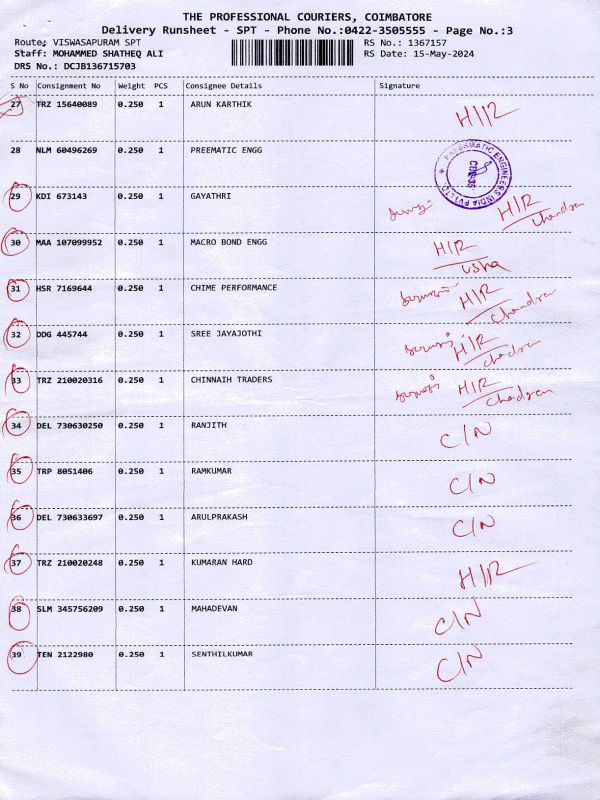 THE PROFESSIONAL COURIERS, COIMBATORE
Delivery Runsheet - SPT - Phone No.:0422-3505555 - Page No.:3
Route: VISWASAPURAM SPT RS No.: 1367157
Staff: MOHAMMED SHATHEQ ALI RS Date: 15-May-2024
DRS No.: DCJB136715703
S No Consignment No Weight PCS Consignee Details Signature
27 TRZ 15640089 0.250 1 ARUN KARTHIK H/R
28 NLM 60496269 0.250 1 PREEMATIC ENGG
ENGINEERS INDIA PVT LTD
29 KDI 673143 0.250 1 GAYATHRI H/R
Chandran
30 MAA 107099952 0.250 1 MACRO BOND ENGG H/R
Usha
31 HSR 7169644 0.250 1 CHIME PERFORMANCE H/R
Chandran
32 DDG 445744 0.250 1 SREE JAYAJOTHI H/R
Chandran
33 TRZ 210020316 0.250 1 CHINNAIH TRADERS H/R
Chandran
34 DEL 730630250 0.250 1 RANJITH C/N
35 TRP 8051406 0.250 1 RAMKUMAR C/N
36 DEL 730633697 0.250 1 ARULPRAKASH C/N
37 TRZ 210020248 0.250 1 KUMARAN HARD H/R
38 SLM 345756209 0.250 1 MAHADEVAN C/N
39 TEN 2122980 0.250 1 SENTHILKUMAR C/N